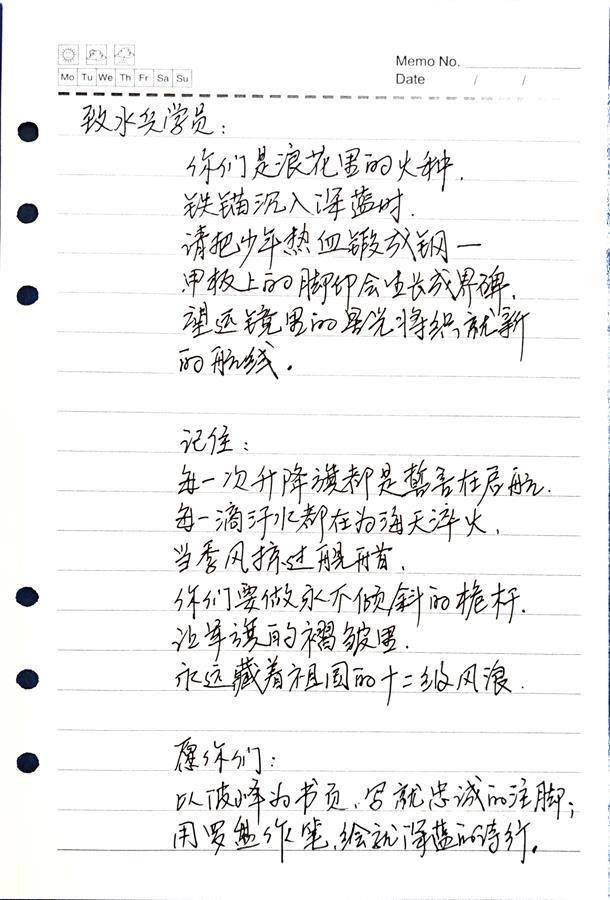 Memo No.
Mo Tu We Th Fr Sa Su
Date / /
致水兵学员：
你们是浪花里的火种，
铁锚沉入深蓝时，
请把少年热血锻成钢—
甲板上的脚印会生长成界碑，
望远镜里的星光将织就新
的航线。
记住：
每一次升降旗都是誓言在启航，
每一滴汗水都在为海天淬火，
当季风掠过舰首，
你们要做永不倾斜的桅杆，
让军旗的褶皱里，
永远藏着祖国的十二级风浪，
愿你们：
以波峰为书页，写就忠诚的注脚；
用罗盘作笔，绘就深蓝的诗行。